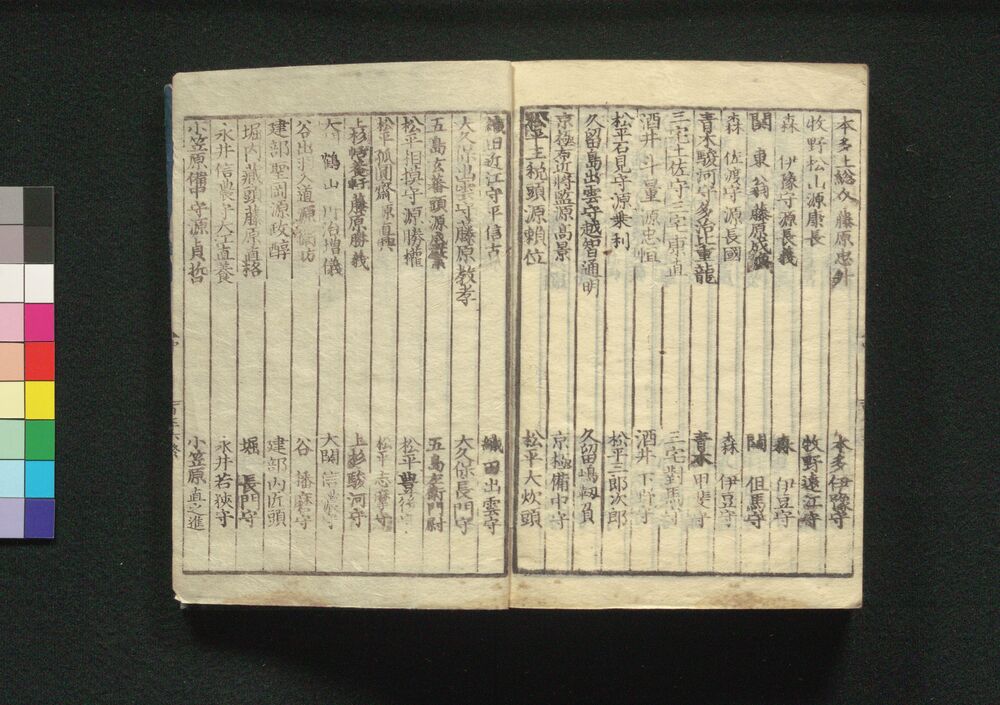 本多上総介 藤原忠升 本多伊豫守
牧野松山源康長 牧野遠江守
森 伊豫守源長義 森 伊豆守
関 東翁藤原成煥 関 但馬守
森 佐渡守源長國 森 伊豆守
青木駿河守多治比重龍 青木甲斐守
三宅土佐守三宅康直 三宅對馬守
酒井斗量源忠恒 酒井下野守
松平石見守源乘利 松平三郎次郎
久留島出雲守越智通明 久留嶋靱負
京極右近将監源高景 京極備中守
松平主税頭源頼位 松平大炊頭
織田近江守平信古 織田出雲守
大久保出雲守藤原教孝 大久保長門守
五島玄蕃頭源 五島左衛門尉
松平相模守源勝權 松平豊後守
松平 狐圓齋源直興 松平志摩守
上杉 藤原勝義 上杉駿河守
大関鶴山 増儀 大関信濃守
谷出羽入道源 谷 播磨守
建部聖岡源政醇 建部内匠頭
堀内蔵頭藤原直格 堀 長門守
永井信濃守大江直養 永井若狭守
小笠原備中守源貞哲 小笠原直之進